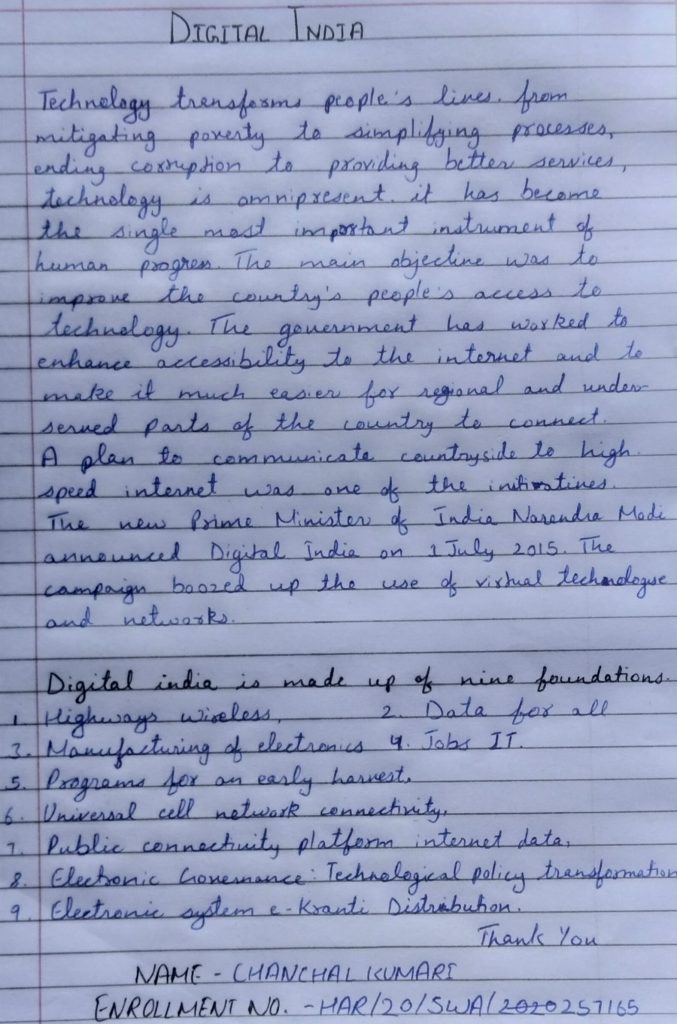 DIGITAL INDIA
Technology transforms people's lives. from
mitigating poverty to simplifying processes,
ending corruption to providing better services,
technology is omnipresent. it has become
the single most important instrument of
human progress. The main objective was to
improve the country's people's access to
technology. The government has worked to
enhance accessibility to the internet and to
make it much easier for regional and under-
served parts of the country to connect.
A plan to communicate countryside to high
speed internet was one of the initivatives.
The new Prime Minister of India Narendra Modi
announced Digital India on 1 July 2015. The
campaign boozed up the use of virtual technologue
and networks.
Digital india is made up of nine foundations.
1. Highways wireless, 2. Data for all
3. Manufacturing of electronics 4. Jobs IT.
5. Programs for an early harvest.
6. Universal cell network connectivity,
7. Public connectivity platform internet data,
8. Electronic Governance: Technological policy transformation
9. Electronic system e-Kranti Distribution.
Thank You
NAME - CHANCHAL KUMARI
ENROLLMENT NO. - HAR/20/SWA/2020257165